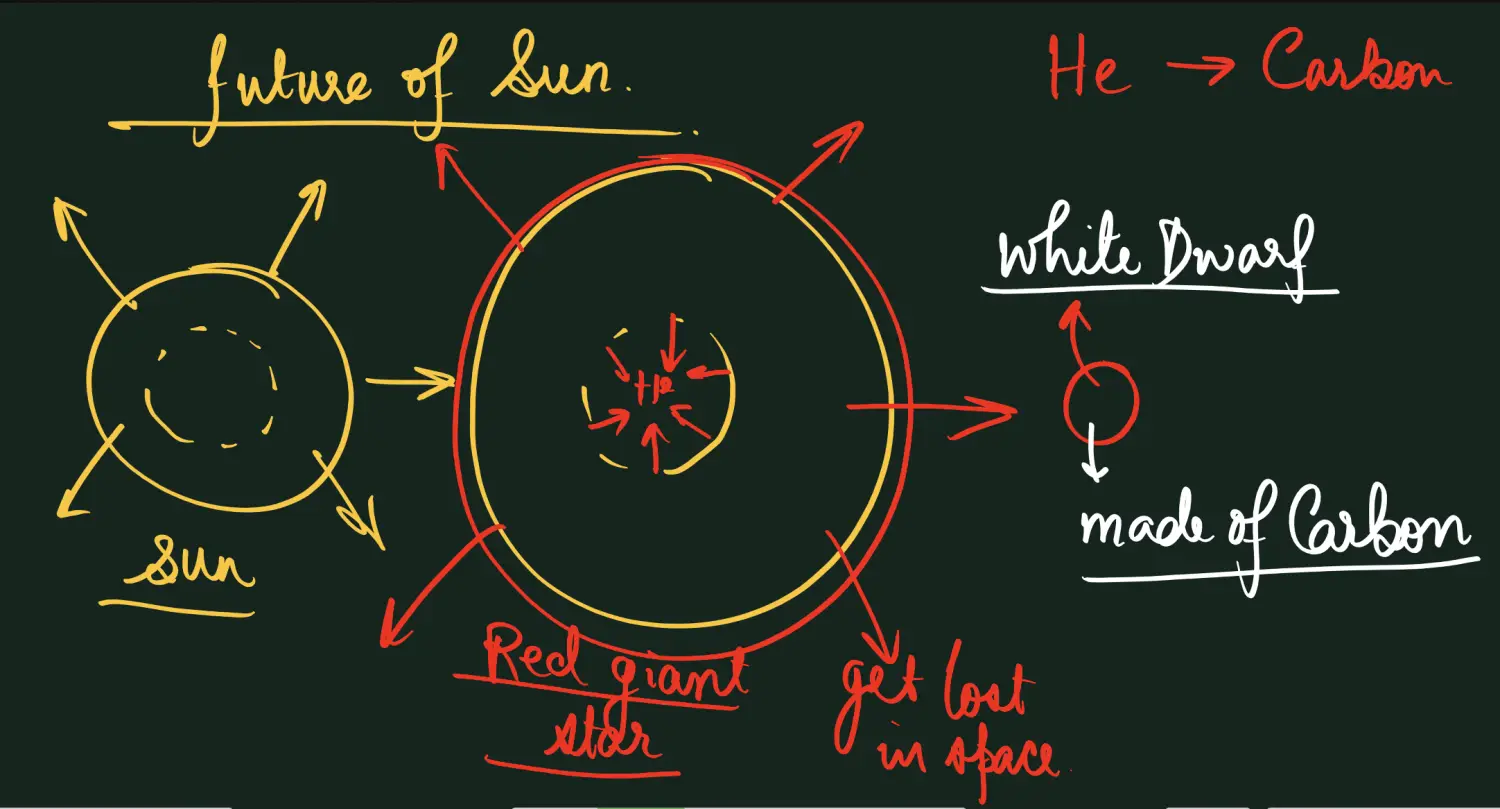 future of Sun.
He → Carbon
White Dwarf
He
made of Carbon
Sun
Red giant
star
get lost
in space